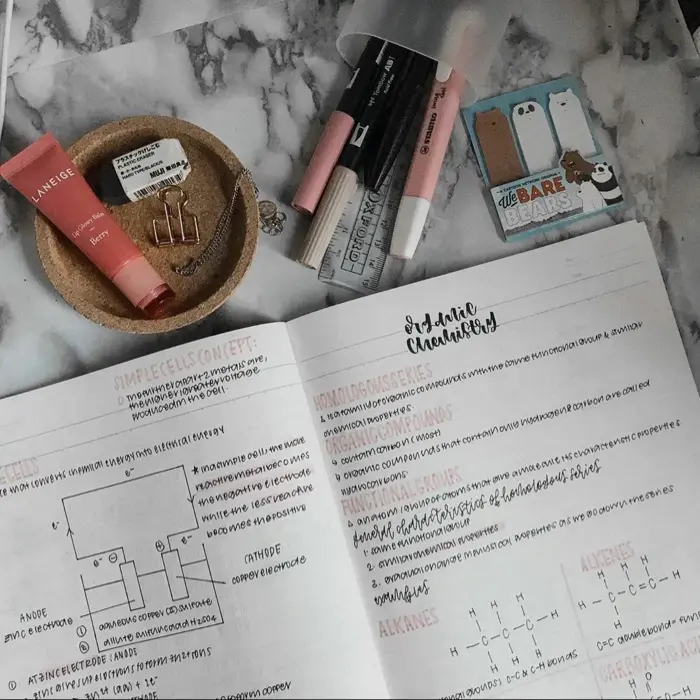 LANEIGE
Lip Glowy Balm
Berry
プラスチックけしごむ
PLASTIC ERASER
MUJI 無印良品
Tombow ABT
STABILO
OXFORD
A CARTOON NETWORK ORIGINAL
We BARE
BEARS
SIMPLE CELLS CONCEPT:
the further apart 2 metals are,
the higher greater voltage
produced in the cell.
CELLS
that converts chemical energy into electrical energy
e⁻
* in a simple cell, the more
reactive metal becomes
the negative electrode
while the less reactive
becomes the positive
e⁻
e⁻
e⁻
e⁻
CATHODE
copper electrode
ANODE
zinc electrode
① aqueous copper (II) sulfate
② dilute sulfuric acid H₂SO₄
① AT ZINC ELECTRODE / ANODE
zinc gives up electrons to form zn2+ions
organic
chemistry
HOMOLOGOUS SERIES
is a family of organic compounds with the same functional group & similar
chemical properties.
ORGANIC COMPOUNDS
contain carbon (most)
organic compounds that contain only hydrogen & carbon are called
hydrocarbons.
FUNCTIONAL GROUPS
an atom / group of atoms that give a molecule its characteristic properties
general characteristics of homologous series
1. same functional group
2. similar chemical properties
3. gradual change in physical properties as we go down the series
examples
ALKANES
H H H
H - C - C - C - H
H H H
C-C & C-H bonds
ALKENES
H H H
H - C - C = C - H
H
C=C double bond = fun
CARBOXYLIC ACI